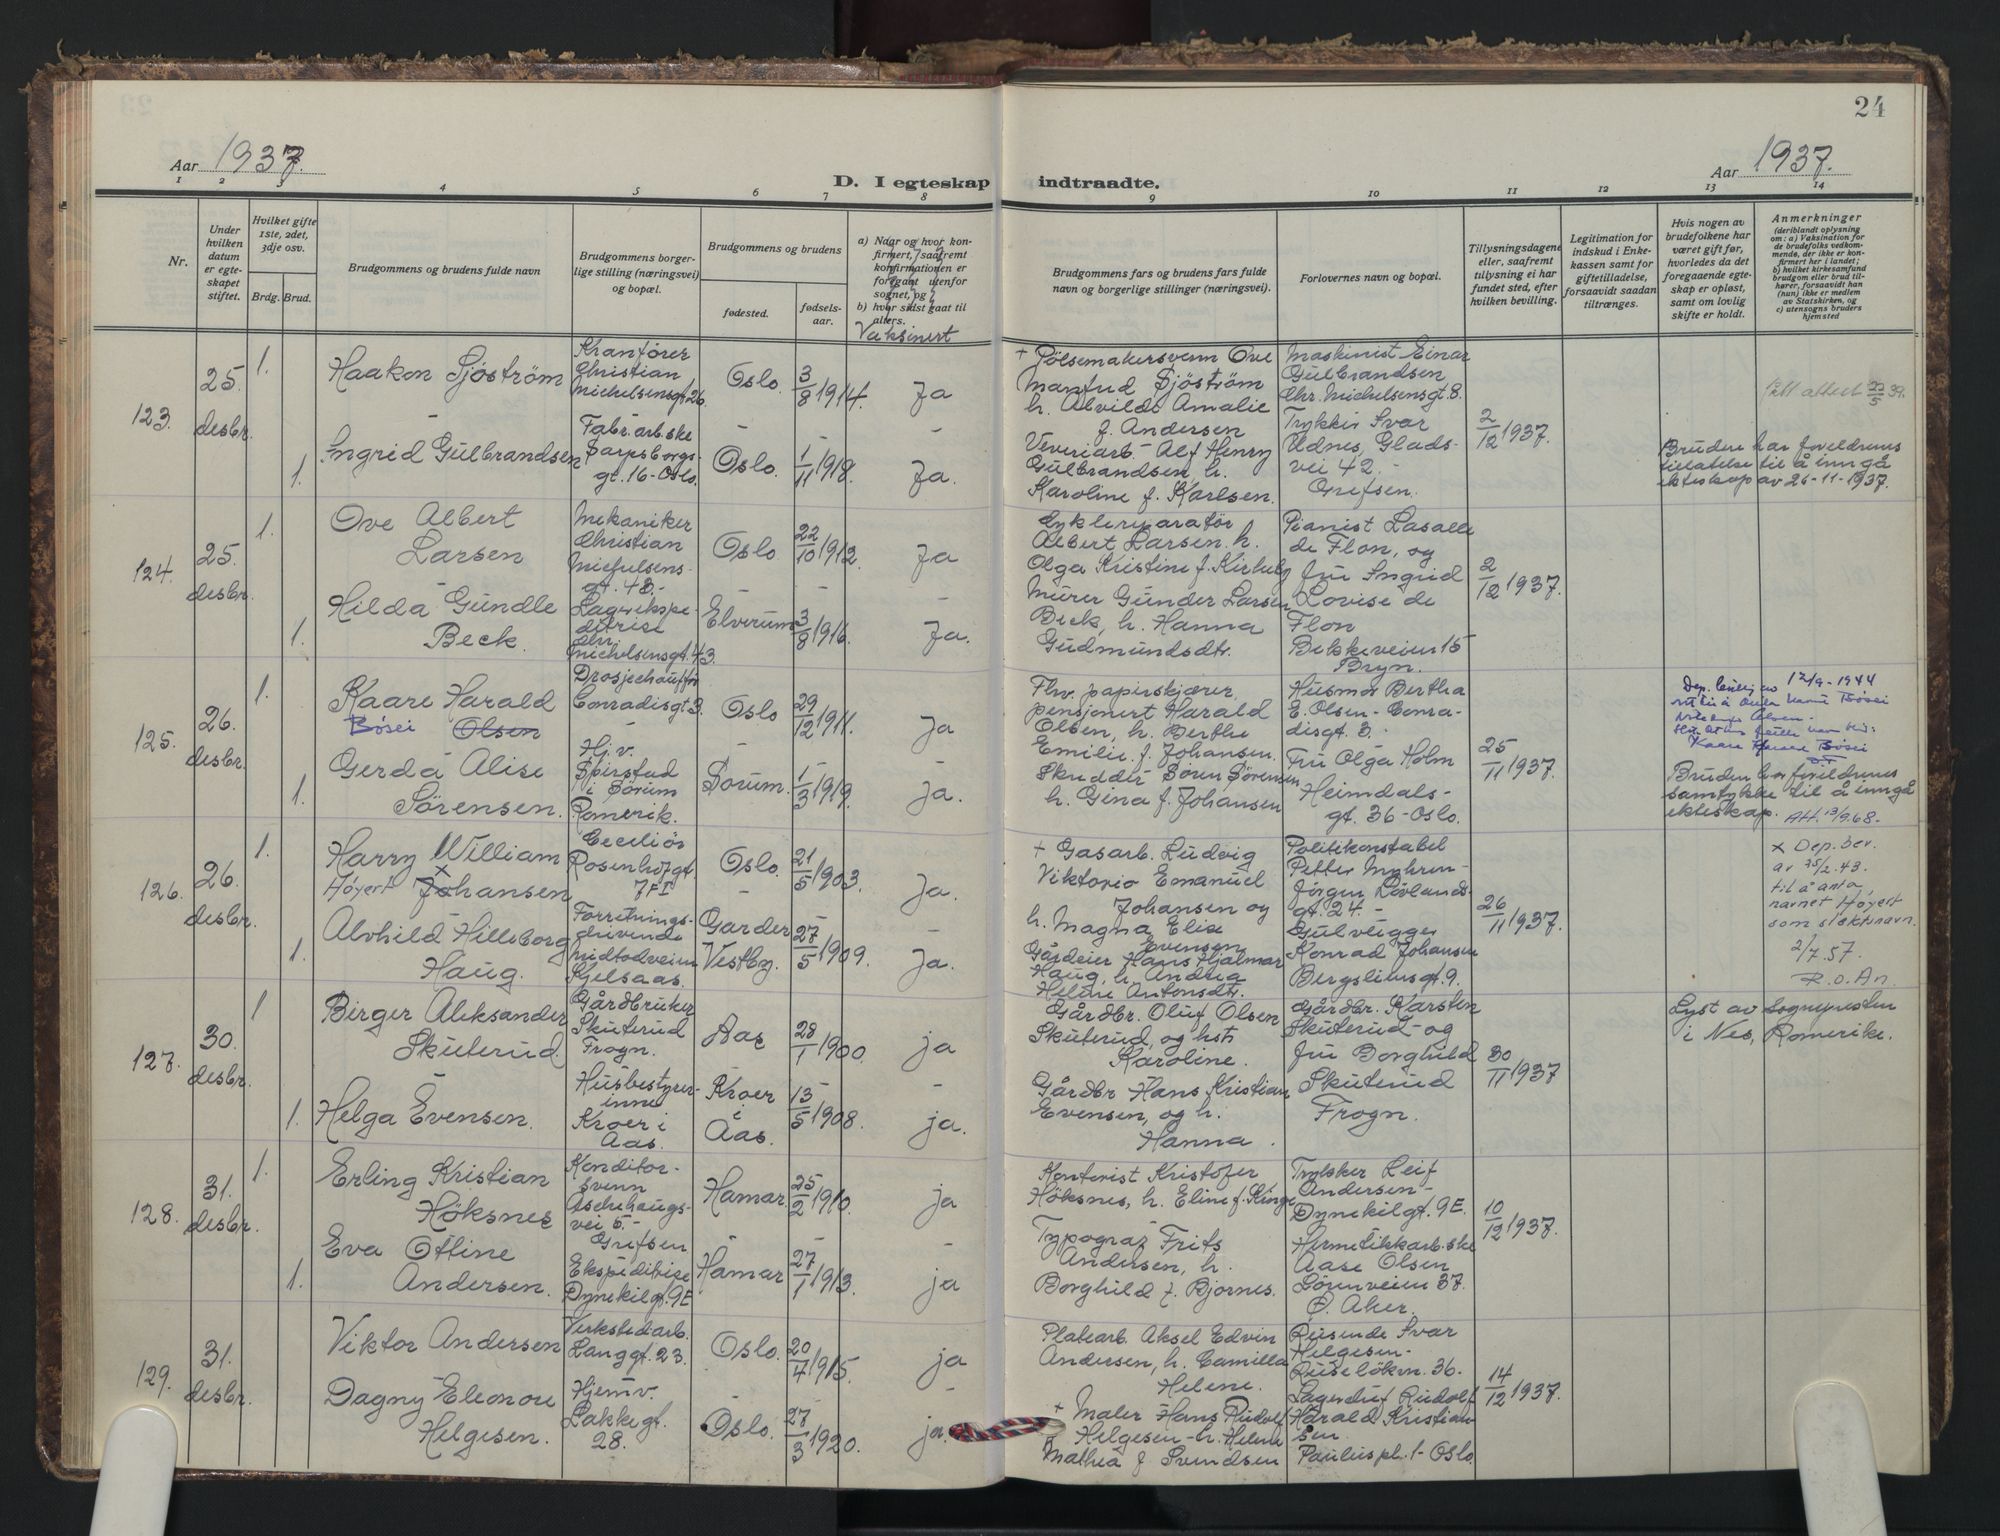 24
Aar 1937.
D. I egteskap indtraadte.
Aar 1937.
1 2 3 4 5 6 7 8 9 10 11 12 13 14
Nr.
Under
hvilken
datum
er egte-
skapet
stiftet.
Hvilket gifte
1ste, 2det,
3dje osv.
Brdg. Brud.
Brudgommens og brudens fulde navn
Brudgommens borger-
lige stilling (næringsvei)
og bopæl.
Brudgommens og brudens
fødested.
fødsels-
aar.
a) Naar og hvor kon-
firmert, saafremt
konfirmationen er
foregaat utenfor
sognet, og
b) hvor sidst gaat til
alters.
Vaksinert
Brudgommens fars og brudens fars fulde
navn og borgerlige stillinger (næringsvei).
Forlovernes navn og bopæl.
Tillysningsdagene
eller, saafremt
tillysning ei har
fundet sted, efter
hvilken bevilling.
Legitimation for
indskud i Enke-
kassen samt for
giftetilladelse,
forsaavidt saadan
tiltrænges.
Hvis nogen av
brudefolkene har
været gift før,
hvorledes da det
foregaaende egte-
skap er opløst,
samt om lovlig
skifte er holdt.
Anmerkninger
(deriblandt oplysning
om: a) Vaksination for
de brudefolks vedkom-
mende, der ikke er kon-
firmert her i landet;
b) hvilket kirkesamfund
brudgom eller brud til-
hører, forsaavidt han
(hun) ikke er medlem
av Statskirken, og
c) utensogns bruders
hjemsted
123.
25.
desbr.
1.
Haakon Sjöström
Kranförer
Christian
Michelsensgt 26.
Oslo
3/8 1914.
Ja
+ Pölsemakersvenn Ove
Manfud Sjöström
h. Alvilde Amalie
f. Andersen
Maskinist Einar
Gulbrandsen
Chr. Michelsensgt 8.
Trykker Ivar
Udnes, Glads-
vei 42.-
Grefsen.
2/12 1937.
attest 22/5 39.
1.
Ingrid Gulbrandsen
Fabr. arb.ske
Sarpsborgs-
gt. 16-Oslo.
Oslo.
1/11 1918.
Ja.
Veveriarb- Alf Henry
Gulbrandsen, h.
Karoline f. Karlsen.
Bruden har foreldrenes
tillatelse til å inngå
ekteskap av 26-11-1937.
124.
25.
desbr.
1.
Ove Albert
Larsen
Mekaniker
Christian
Michelsens-
gt. 43.-
Oslo
22/10 1912.
Ja
Cyklereparatör
Albert Larsen. h.
Olga Kristine f. Kirkeby
Pianist Lasalle
de Flon, og
fru Ingrid
Lovise de
Flon
Bekkeveien 15
Bryn.
2/12 1937.
1.
Hilda Gundle
Beck.
Lagerekspe-
ditrise
Chr.
Michelsensgt. 43.
Elverum
3/8 1916.
Ja.
Murer Gunder Larsen
Beck, h. Hanna
Gudmundsdtr.
125.
26.
desbr.
1.
Kaare Harald
Bösei Olsen
Drosjechauffør
Conradisgt 3.
Oslo
29/12 1911.
Ja
Fhv. papirskjærer,
pensjonert Harald
Olsen, h. Berthe
Emilie f. Johansen.
Husmor Bertha
E. Olsen- Conra-
disgt. 3.-
Fru Olga Holm
Heimdals-
gt. 36-Oslo.
25/11 1937.
12/9-1944
Kaare Harald Bösei
1.
Gerda Alise
Sörensen.
Hj. v.
Spirstad
i Sörum
Romerik.
Sorum.
1/3 1919.
ja.
Skredder Sören Sörensen
h. Gina f. Johansen
Bruden har foreldrenes
samtykke til å inngå
ekteskap. Att. 13/9.68.-
126.
26.
desbr.
1.
Harry William
Höyert Johansen
Rosenhofgt.
7 F I
Oslo.
21/5 1903.
Ja.
+ Gasarb. Ludvig
Viktorio Emanuel
Johansen og
h. Magna Elise
Evensen
Politikonstabel
Petter Myhren-
Jörgen Lövlands-
gt. 24.-
Konrad Johansen
Bergsliensgt. 9.
26/11 1937.
x Dep. bev.
av 25/2.43.
til å anta
navnet Höyert
som slektsnavn.
2/7.57.
R.O.An.
1.
Alvhild Hilleborg
Haug.
Forretnings-
drivende
Midtoddveien
Kjelsaas.
Garder
Vestby.
27/5 1909.
Ja.
Gårdeier Hans Hjalmar
Haug, h. Andrea
Helene Antonsdtr.
127.
30.
desbr.
1
Birger Aleksander
Skuterud.
Gårdbruker
Skuterud
Frogn.
Aas
28/1 1900.
ja
Gårdbr. Oluf Olsen
Skuterud, og hst
Karoline.
Gårdbr. Karsten
Skuterud- og
fru Borghild
Skuterud
Frogn.
30/11 1937
Lyst av Sognepresten
i Nes, Romerike.
1.
Helga Evensen.
Husbestyrer-
inne
Kroer i
Aas.
Kroer
i
Aas.
13/5 1908.
ja.
Gårdbr Hans Kristian
Evensen, og h.
Hanna.
128.
31.
desbr.
1.
Erling Kristian
Höksnes
Konditor-
svenn
Aschehaugs-
vei 5.-
Grefsen
Hamar
25/2 1910.
ja
Kontorist Kristofer
Höksnes, h. Eline f. Ringe
Trykker Leif
Andersen-
Dynekilgt. 9E.
Hermetikkarb.ske
Aase Olsen
Sörenveien 37.
Ö. Aker.
10/12 1937.
1.
Eva Otline
Andersen.
Ekspeditrise
Dynekilgt. 9E
Hamar
27/1 1913.
ja
Typograf Frits
Andersen, h.
Borghild f. Bjornes.
129.
31.
desbr.
Viktor Andersen
Verkstedarb.
Langgt. 23.
Oslo.
20/4 1915.
ja
Platearb. Aksel Edvin
Andersen, h. Camilla
Helene.
Reisende Ivar
Helgesen-
Ruselökvn. 36.
Lagersjef Rudolf
Harald Kristian-
sen.
Pauluspl. 1-Oslo.
14/12 1937.
Dagny Eleonore
Helgesen.
Hjemv.
Lakkegt.
28.
Oslo.
27/3 1920.
ja.
+ Maler Hans Rudolf
Helgesen- h. Helene
Mathea f Svendsen